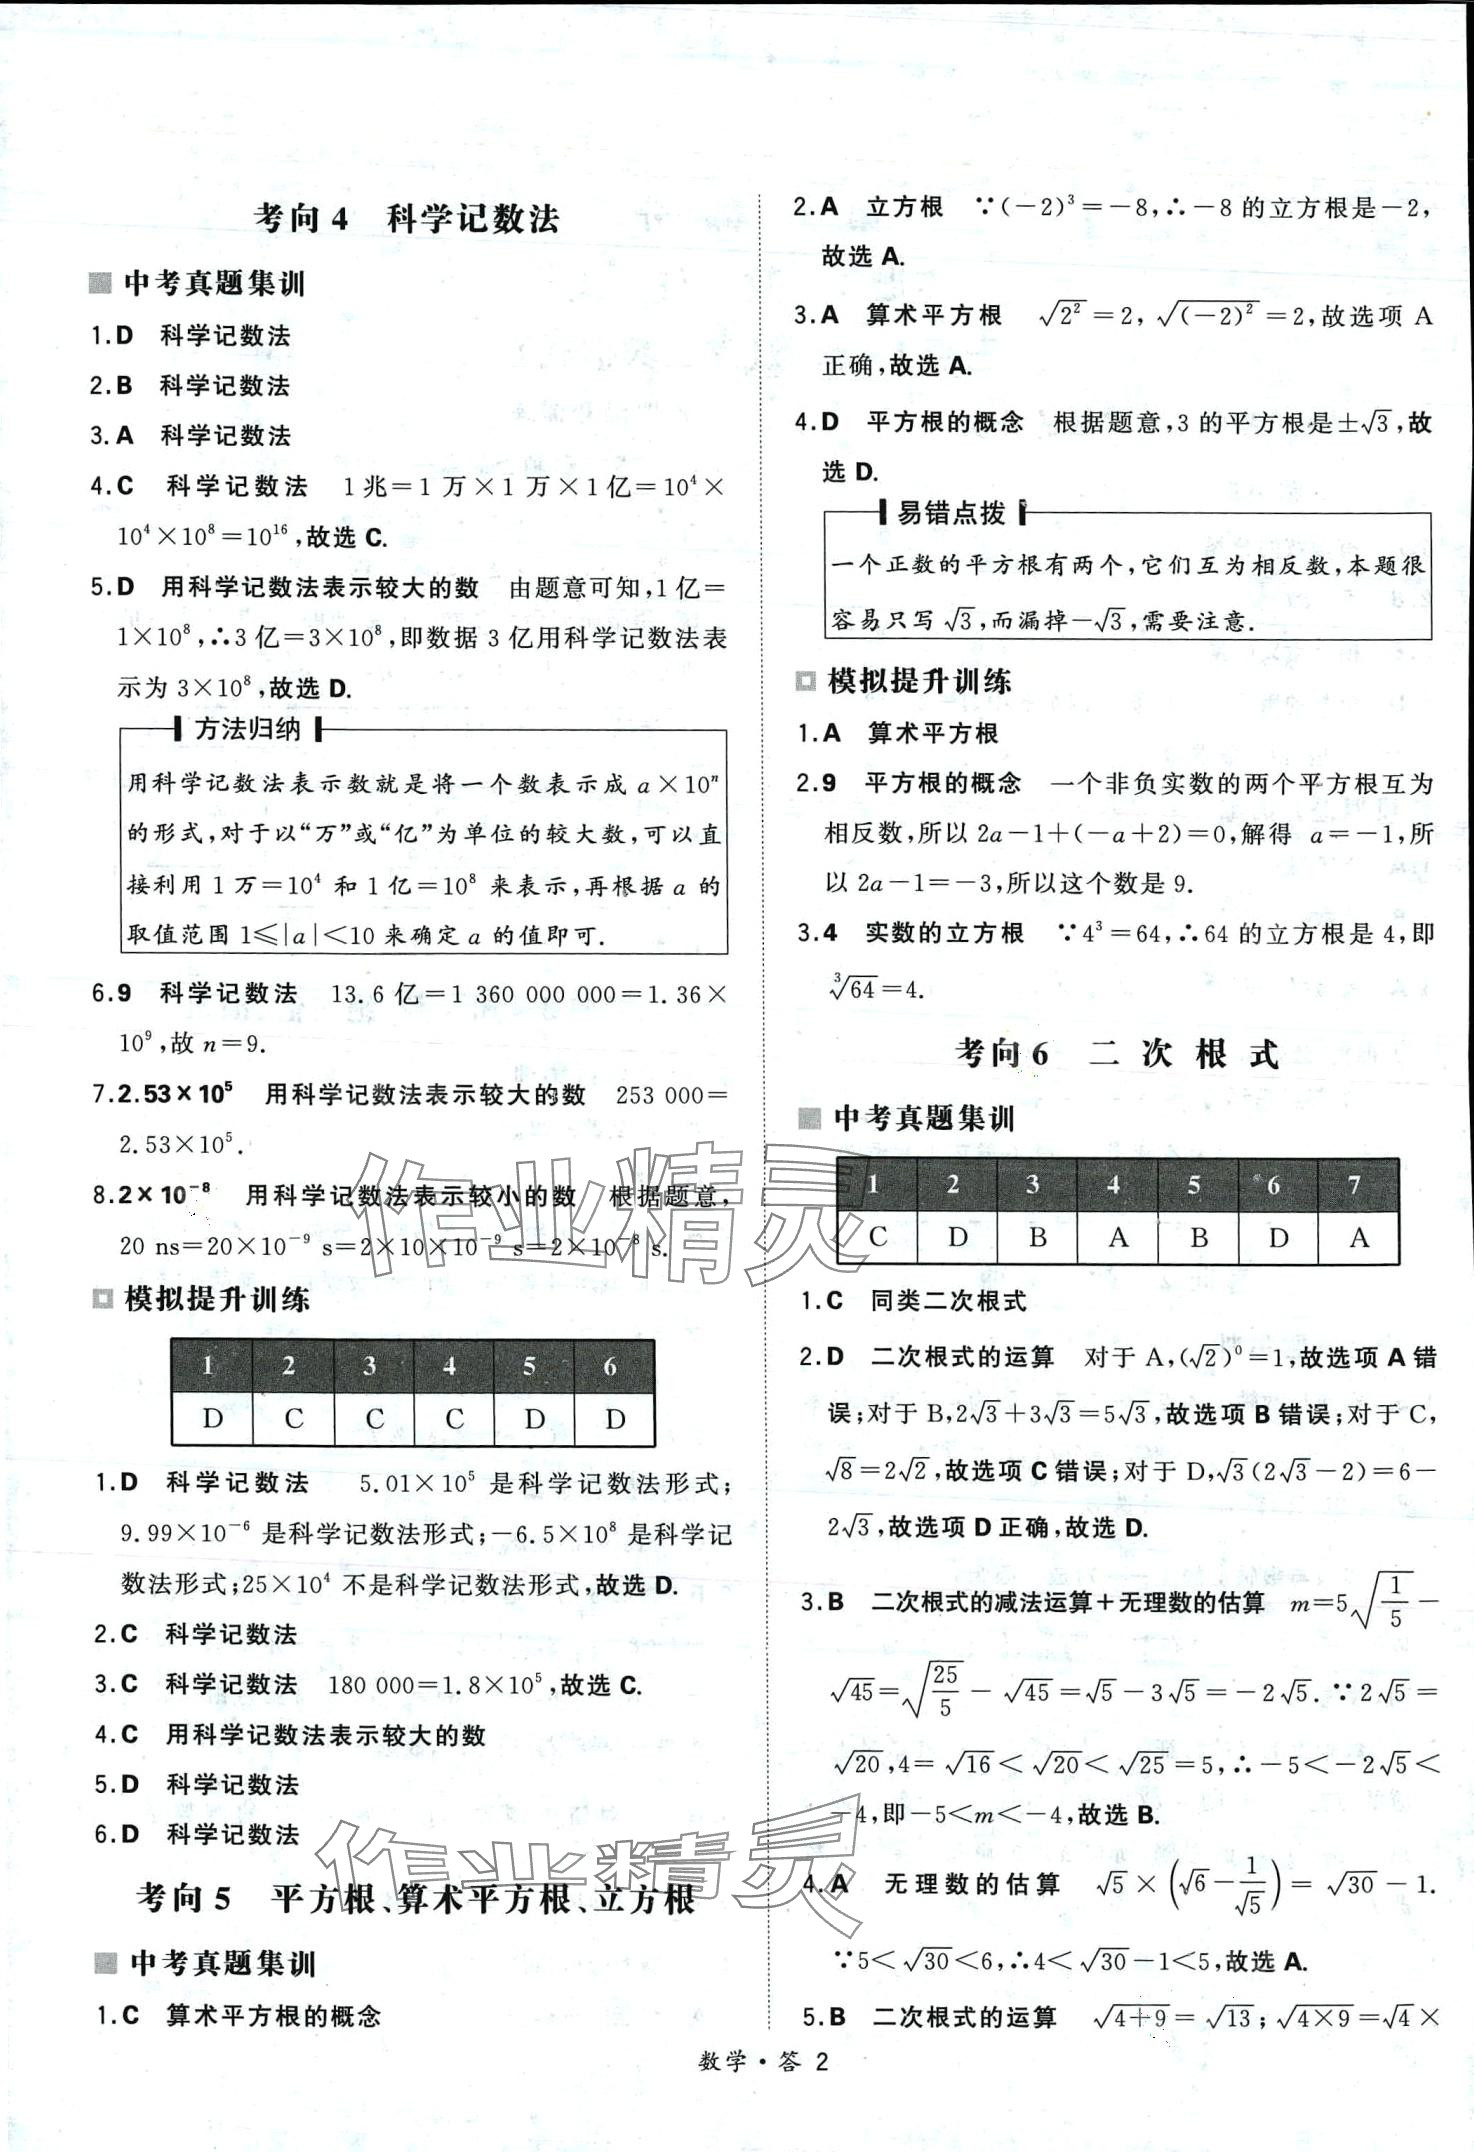 考向4 科学记数法
中考真题集训
1.D 科学记数法
2.B 科学记数法
3.A 科学记数法
4.C 科学记数法 1兆=1万×1万×1亿=10⁴×
10⁴×10⁸=10¹⁶,故选C.
5.D 用科学记数法表示较大的数 由题意可知,1亿=
1×10⁸,∴3亿=3×10⁸,即数据3亿用科学记数法表
示为3×10⁸,故选D.
方法归纳
用科学记数法表示数就是将一个数表示成a×10ⁿ
的形式,对于以“万”或“亿”为单位的较大数,可以直
接利用1万=10⁴和1亿=10⁸来表示,再根据a的
取值范围1≤|a|<10来确定a的值即可.
6.9 科学记数法 13.6亿=1 360 000 000=1.36×
10⁹,故n=9.
7.2.53×10⁵ 用科学记数法表示较大的数 253 000=
2.53×10⁵.
8.2×10⁻⁸ 用科学记数法表示较小的数 根据题意,
20 ns=20×10⁻⁹ s=2×10×10⁻⁹ s=2×10⁻⁸ s.
模拟提升训练
1 2 3 4 5 6
D C C C D D
1.D 科学记数法 5.01×10⁵是科学记数法形式;
9.99×10⁻⁶是科学记数法形式;-6.5×10⁸是科学记
数法形式;25×10⁴不是科学记数法形式,故选D.
2.C 科学记数法
3.C 科学记数法 180 000=1.8×10⁵,故选C.
4.C 用科学记数法表示较大的数
5.D 科学记数法
6.D 科学记数法
考向5 平方根、算术平方根、立方根
中考真题集训
1.C 算术平方根的概念
2.A 立方根 ∵(-2)³=-8,∴-8的立方根是-2,
故选A.
3.A 算术平方根 √(2²)=2,√((-2)²)=2,故选项A
正确,故选A.
4.D 平方根的概念 根据题意,3的平方根是±√3,故
选D.
易错点拨
一个正数的平方根有两个,它们互为相反数,本题很
容易只写√3,而漏掉-√3,需要注意.
模拟提升训练
1.A 算术平方根
2.9 平方根的概念 一个非负实数的两个平方根互为
相反数,所以2a-1+(-a+2)=0,解得 a=-1,所
以2a-1=-3,所以这个数是9.
3.4 实数的立方根 ∵4³=64,∴64的立方根是4,即
∛64=4.
考向6 二次根式
中考真题集训
1 2 3 4 5 6 7
C D B A B D A
1.C 同类二次根式
2.D 二次根式的运算 对于A,(√2)⁰=1,故选项A错
误;对于B,2√3+3√3=5√3,故选项B错误;对于C,
√8=2√2,故选项C错误;对于D,√3(2√3-2)=6-
2√3,故选项D正确,故选D.
3.B 二次根式的减法运算+无理数的估算 m=5√(1/5)-
√45=√(25/5)-√45=√5-3√5=-2√5.∵2√5=
√20,4=√16<√20<√25=5,∴-5<-2√5<
-4,即-5<m<-4,故选B.
4.A 无理数的估算 √5×(√6-1/√5)=√30-1.
∵5<√30<6,∴4<√30-1<5,故选A.
5.B 二次根式的运算 √(4+9)=√13;√(4×9)=√4×
数学·答 2
作业精灵
作业精灵